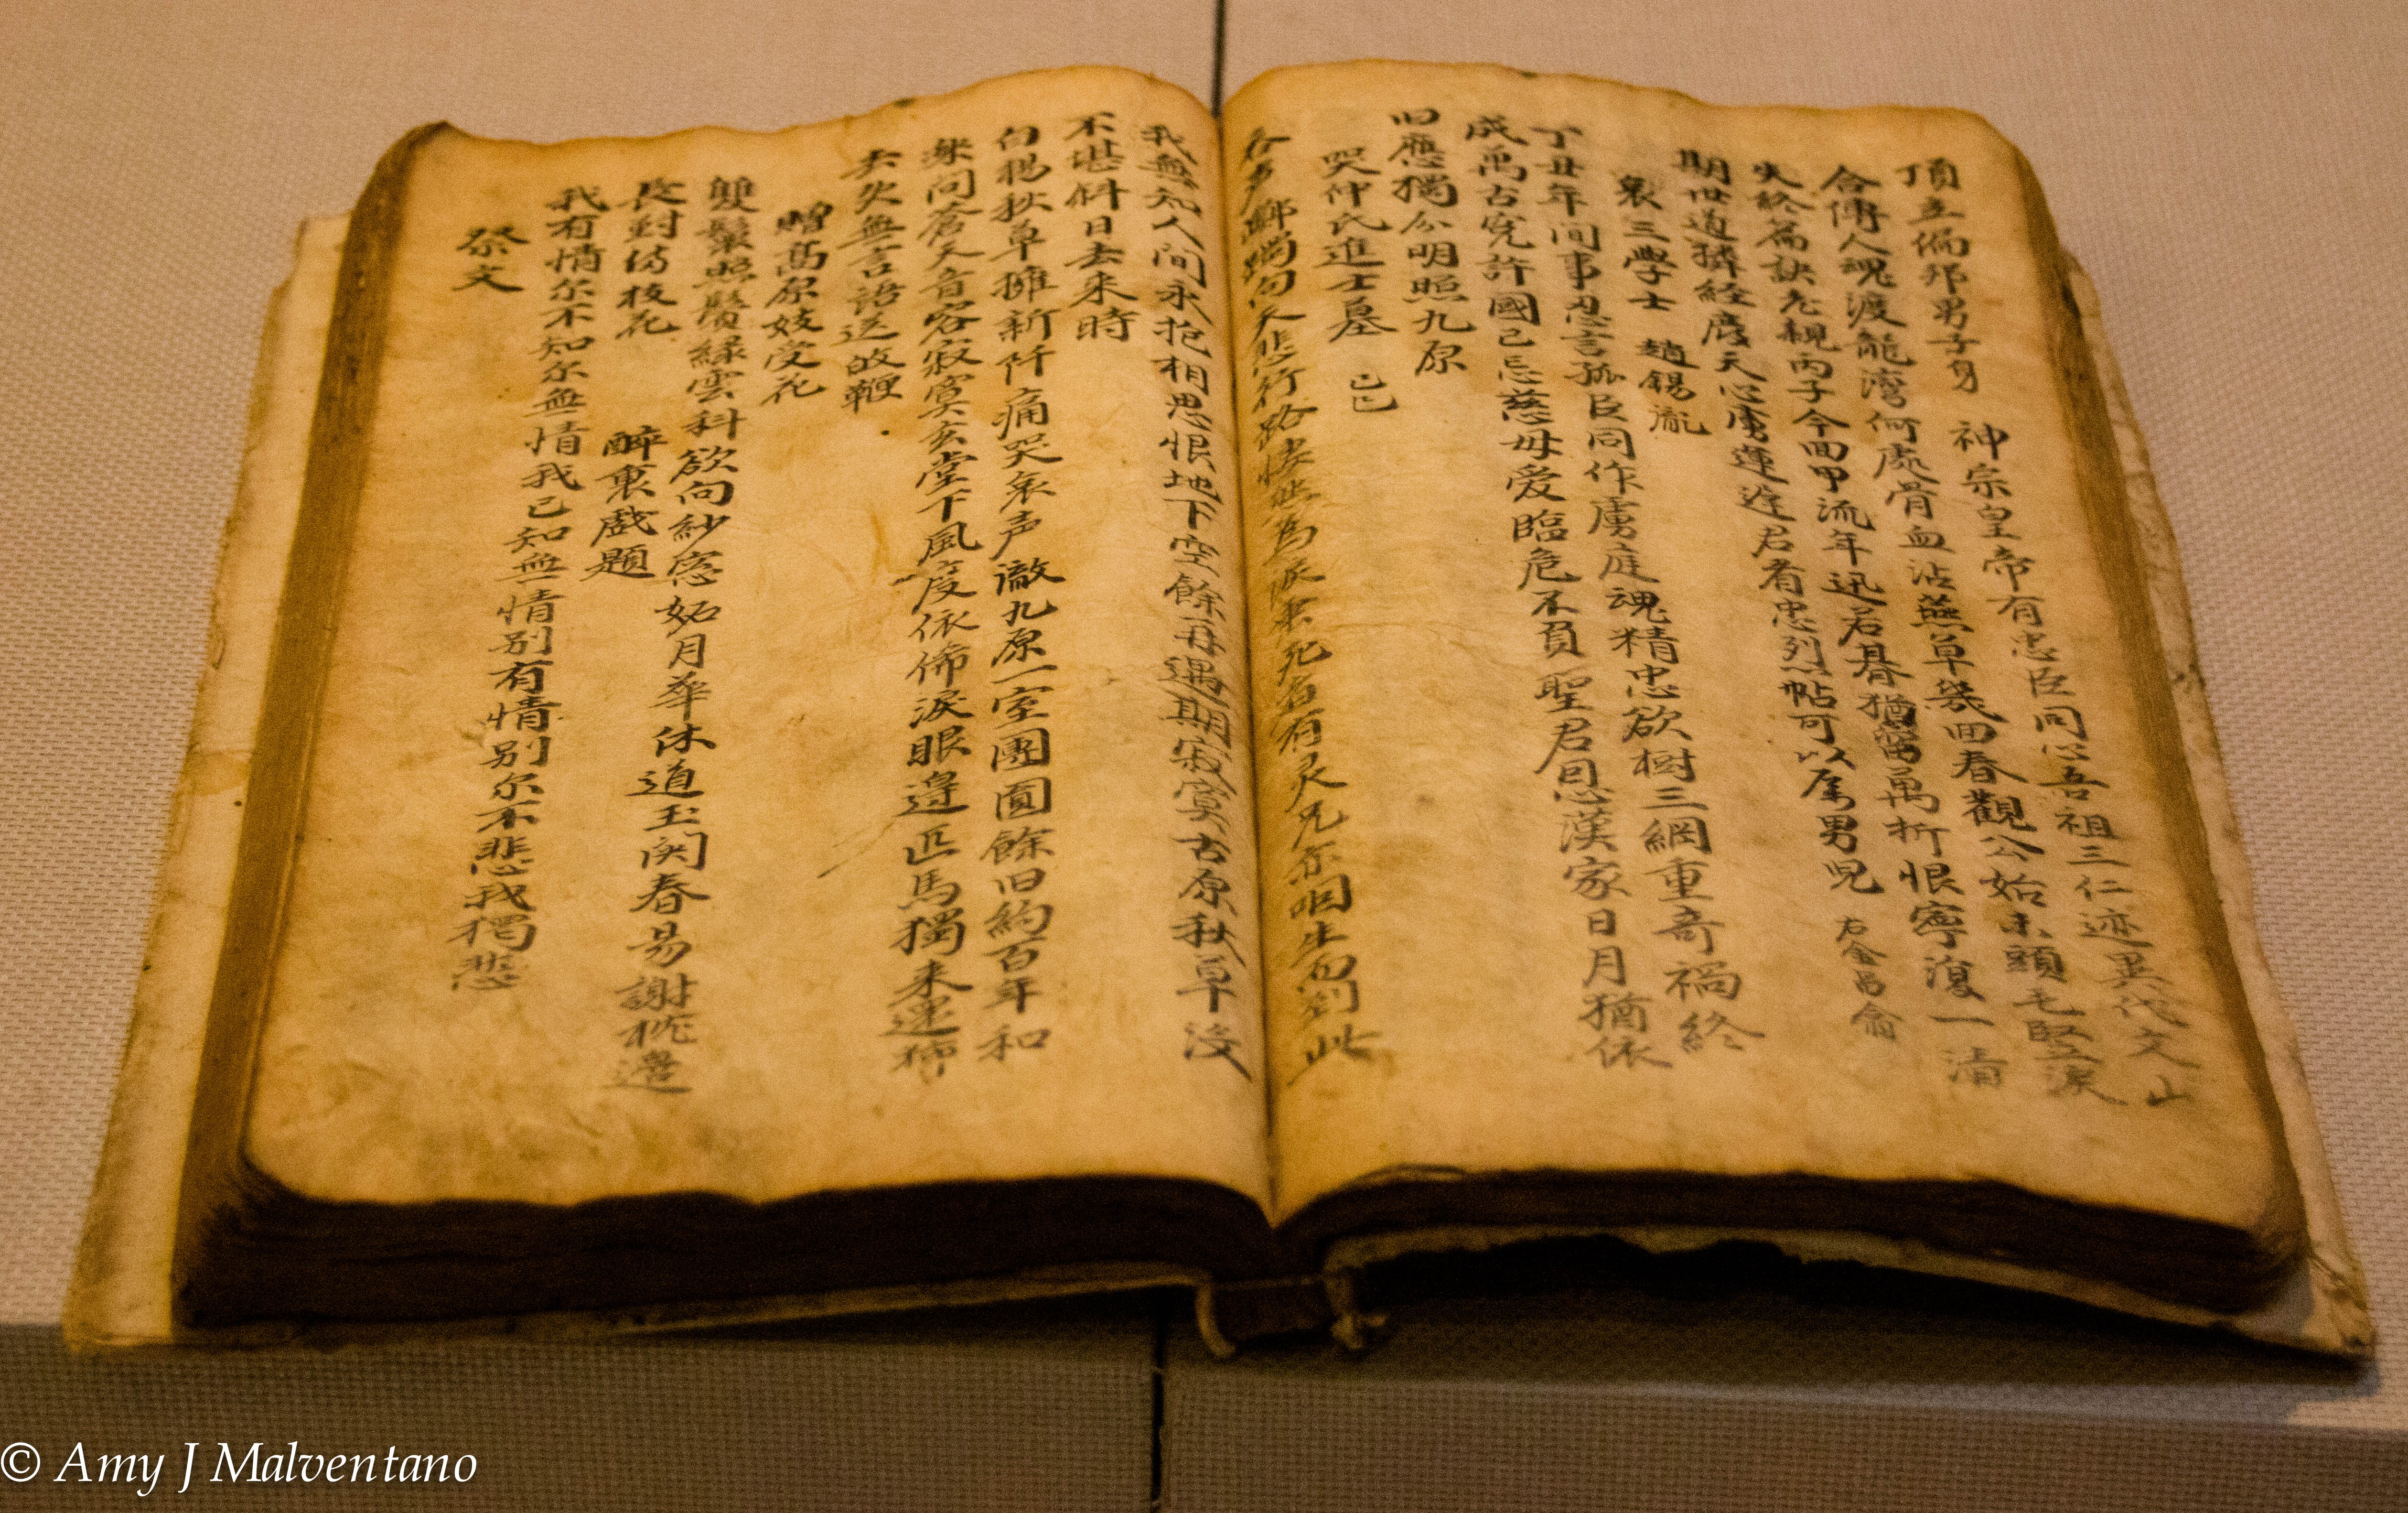 頂立偏邦男子身　神宗皇帝有忠臣同心吾祖三仁迹異代文山
合傳人魂渡龍灣何處骨血沾燕草幾回春觀公始末頭毛竪淚
失終篇訣老親丙子今回甲流年迅若春猶留萬折恨寧復一淸
期世道猜經慶天心虜運遲君看忠烈帖可以屬男児 右金昌翕
哀三學士 趙錫胤
丁丑年間事忍言孤臣同作虜庭魂精忠欲樹三綱重奇禍終
成萬古寃許國已忘慈母爱臨危不負聖君恩漢家日月猶依
旧應獨分明照九原
哭仲氏進士墓 己巳
天悲行路悽 為 死者有灵兄尔咽生 到此
我無知人間永抱相思恨地下空餘再遇期寂寞古原秋草没
不堪斜日去来時
白楊秋草擁新阡痛哭哀声澈九原一室團圓餘旧約百年和
樂问蒼天音容寂寞玄堂下風度依俙淚眼邊匹馬獨来還獨
去矣無言語送故鞭
贈高原妓受花
雙鬟照鬢緑雲斜欲向紗窓妬月華休道玉関春易謝枕邊
長對荷枝花　醉裏戲題
我有情尔不知尔無情我已知無情别有情别尔不悲我獨悲
祭文
© Amy J Malventano